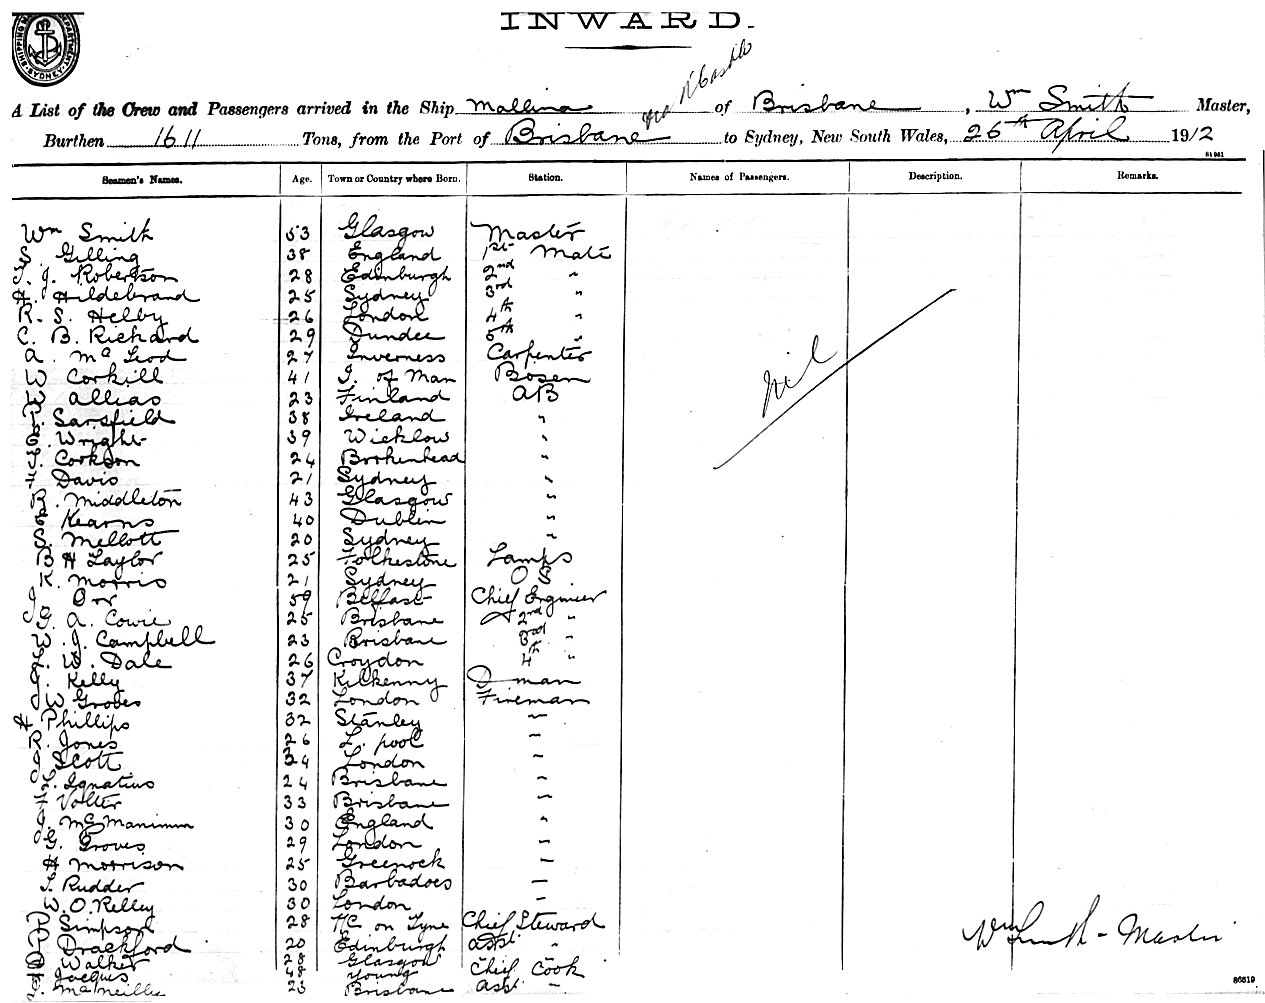 INWARD.
via N'Castle
A List of the Crew and Passengers arrived in the Ship Mallina of Brisbane, Wm Smith Master,
Burthen 1611 Tons, from the Port of Brisbane to Sydney, New South Wales, 26th April 1912
81961
Seamen's Names. Age. Town or Country where Born. Station. Names of Passengers. Description. Remarks.
Wm Smith 53 Glasgow Master
S. Gilling 38 England 1st Mate
T. J. Robertson 28 Edinburgh 2nd "
H. Hildebrand 25 Sydney 3rd "
R. S. Helby 26 London 4th "
C. B. Richard 29 Dundee 5th "
A. McLeod 27 Inverness Carpenter
W Corkill 41 I. of Man Bosen
W Allias 23 Finland AB
Sarsfield 38 Ireland "
Wright 39 Wicklow "
Corkson 24 Borkenhead "
F Davis 21 Sydney "
R. Middleton 43 Glasgow "
Kearns 40 Dublin "
S. Mellott 20 Sydney "
B H Taylor 25 Folkestone Lamps
K. Morris 21 Sydney O S
J. Orr 59 Belfast Chief Engineer
G. A. Cowie 25 Brisbane 2nd "
W. J. Campbell 23 Brisbane 3rd "
W. Dale 26 Croydon 4th "
J. Kelly 37 Kilkenny D-man
W Groves 32 London Fireman
H Phillips 32 Stanley "
R. Jones 26 L. pool "
J Scott 34 London "
Ignatius 24 Brisbane "
F Volter 33 Brisbane "
J. McManimum 30 England "
G. Groves 29 London "
H Morrison 25 Greenock "
T. Rudder 30 Barbadoes "
W. O. Kelley 30 London "
Simpson 28 N'C on Tyne Chief Steward
Drackford 20 Edinburgh asst "
Walker Glasgow
Jacques Young Chief Cook
J. McNeille 23 Brisbane asst "
nil
Wm Smith - Master
86519